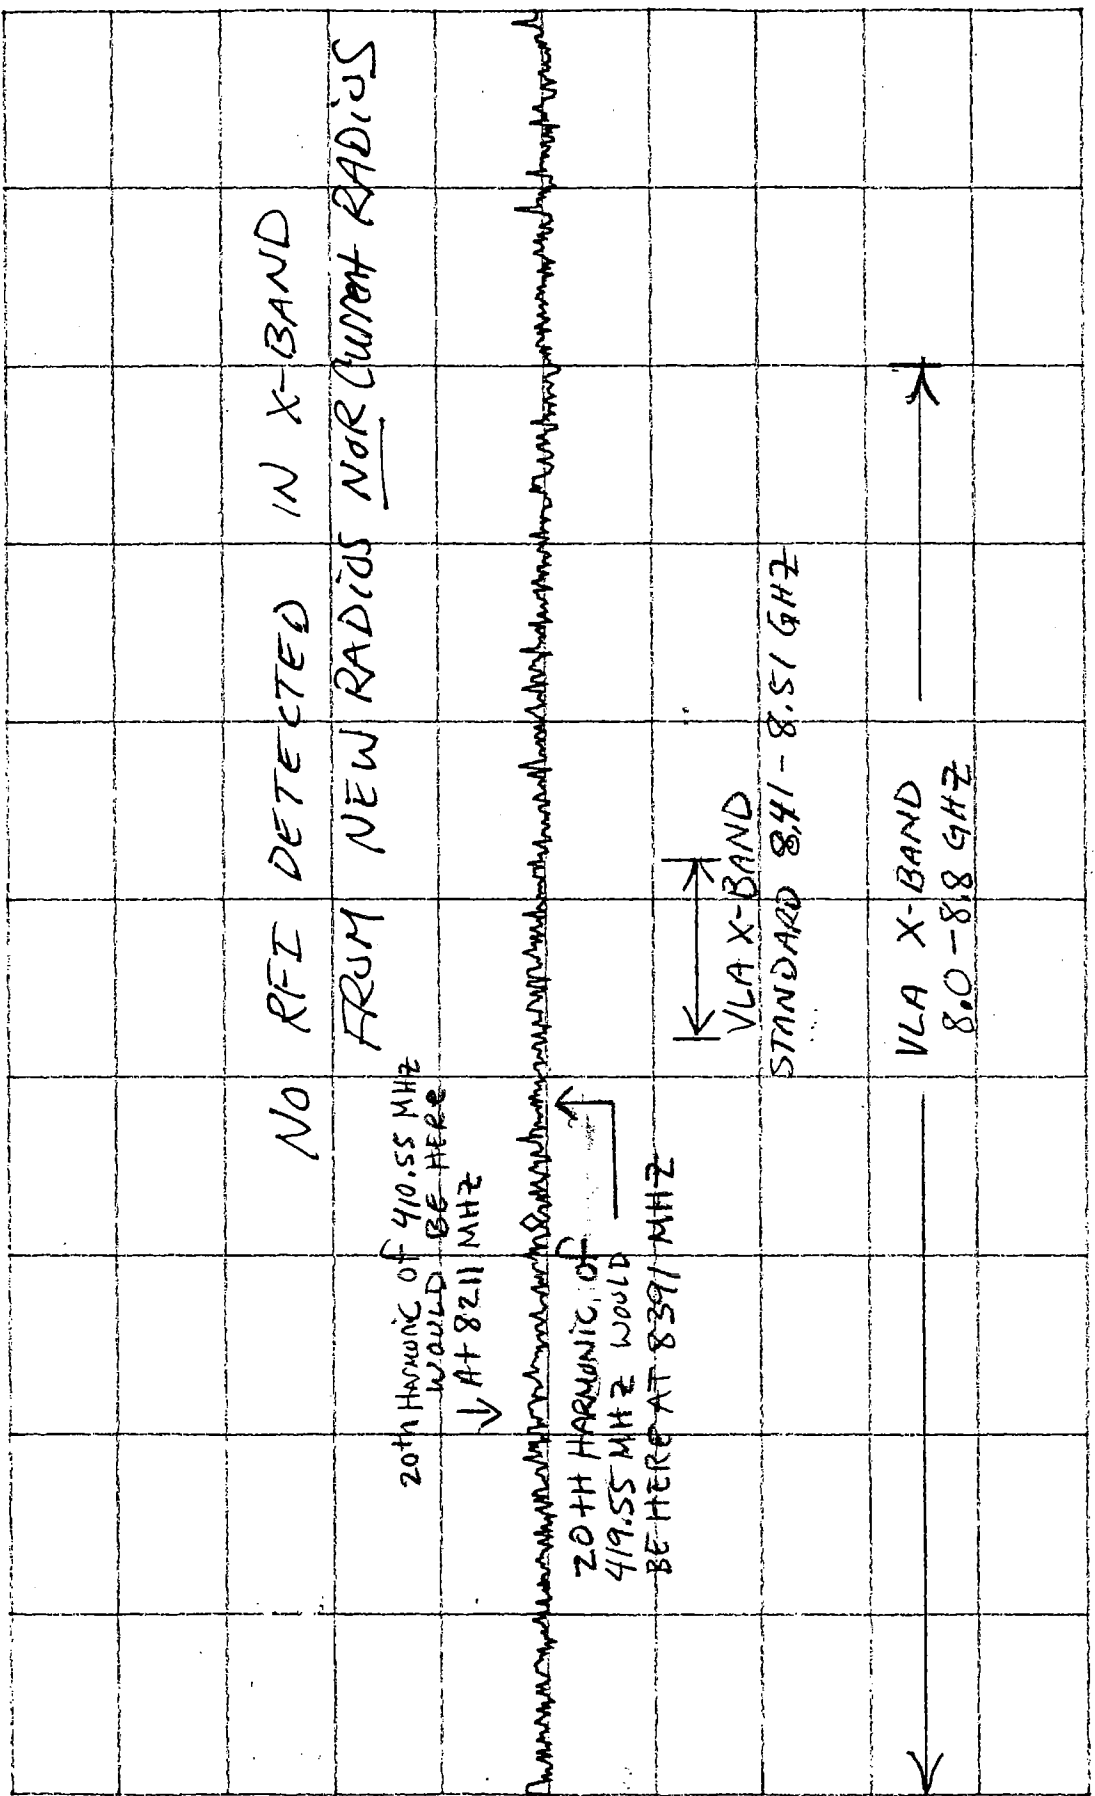 NO RFI DETECTED IN X-BAND
FROM NEW RADIUS NOR Current RADIUS
20th HARMONIC OF 410.55 MHZ
WOULD BE HERE
At 8211 MHZ
20TH HARMONIC OF
419.55 MHZ WOULD
BE HERE AT 8391 MHZ
VLA X-BAND
STANDARD 8.41-8.51 GHZ
VLA X-BAND
8.0-8.8 GHZ